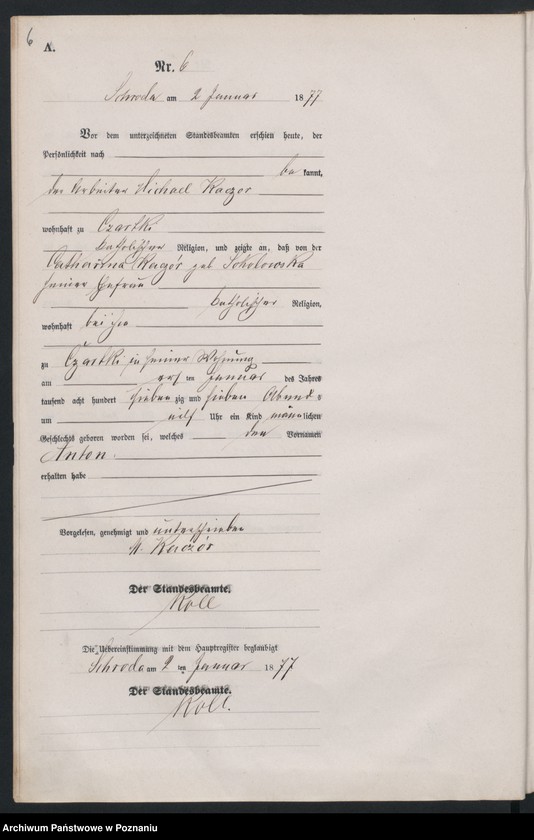 6
A.
Nr. 6
Schroda am 2 Januar 1877
Vor dem unterzeichneten Standesbeamten erschien heute, der
Persönlichkeit nach
be kannt,
der Arbeiter Michael Kaczor
wohnhaft zu Czartki
katholischer Religion, und zeigte an, daß von der
Catharina Kaczór geb Sokolowska
seiner Ehefrau
katholischer Religion,
wohnhaft bei ihm
zu Czartki in seiner Wohnung
am ersten Januar des Jahres
tausend acht hundert siebenzig und sieben Abends
um elf Uhr ein Kind männlichen
Geschlechts geboren worden sei, welches den Vornamen
Anton
erhalten habe
Vorgelesen, genehmigt und unterschrieben
M. Kaczór
Der Standesbeamte.
Roll
Die Uebereinstimmung mit dem Hauptregister beglaubigt
Schroda am 2 ten Januar 1877
Der Standesbeamte.
Roll.
Archiwum Państwowe w Poznaniu